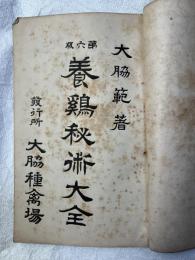 大脇範著
第六版
養鷄秘術大全
發行所
大脇種禽場